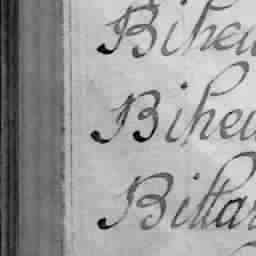 Biheu
Biheu
Billar